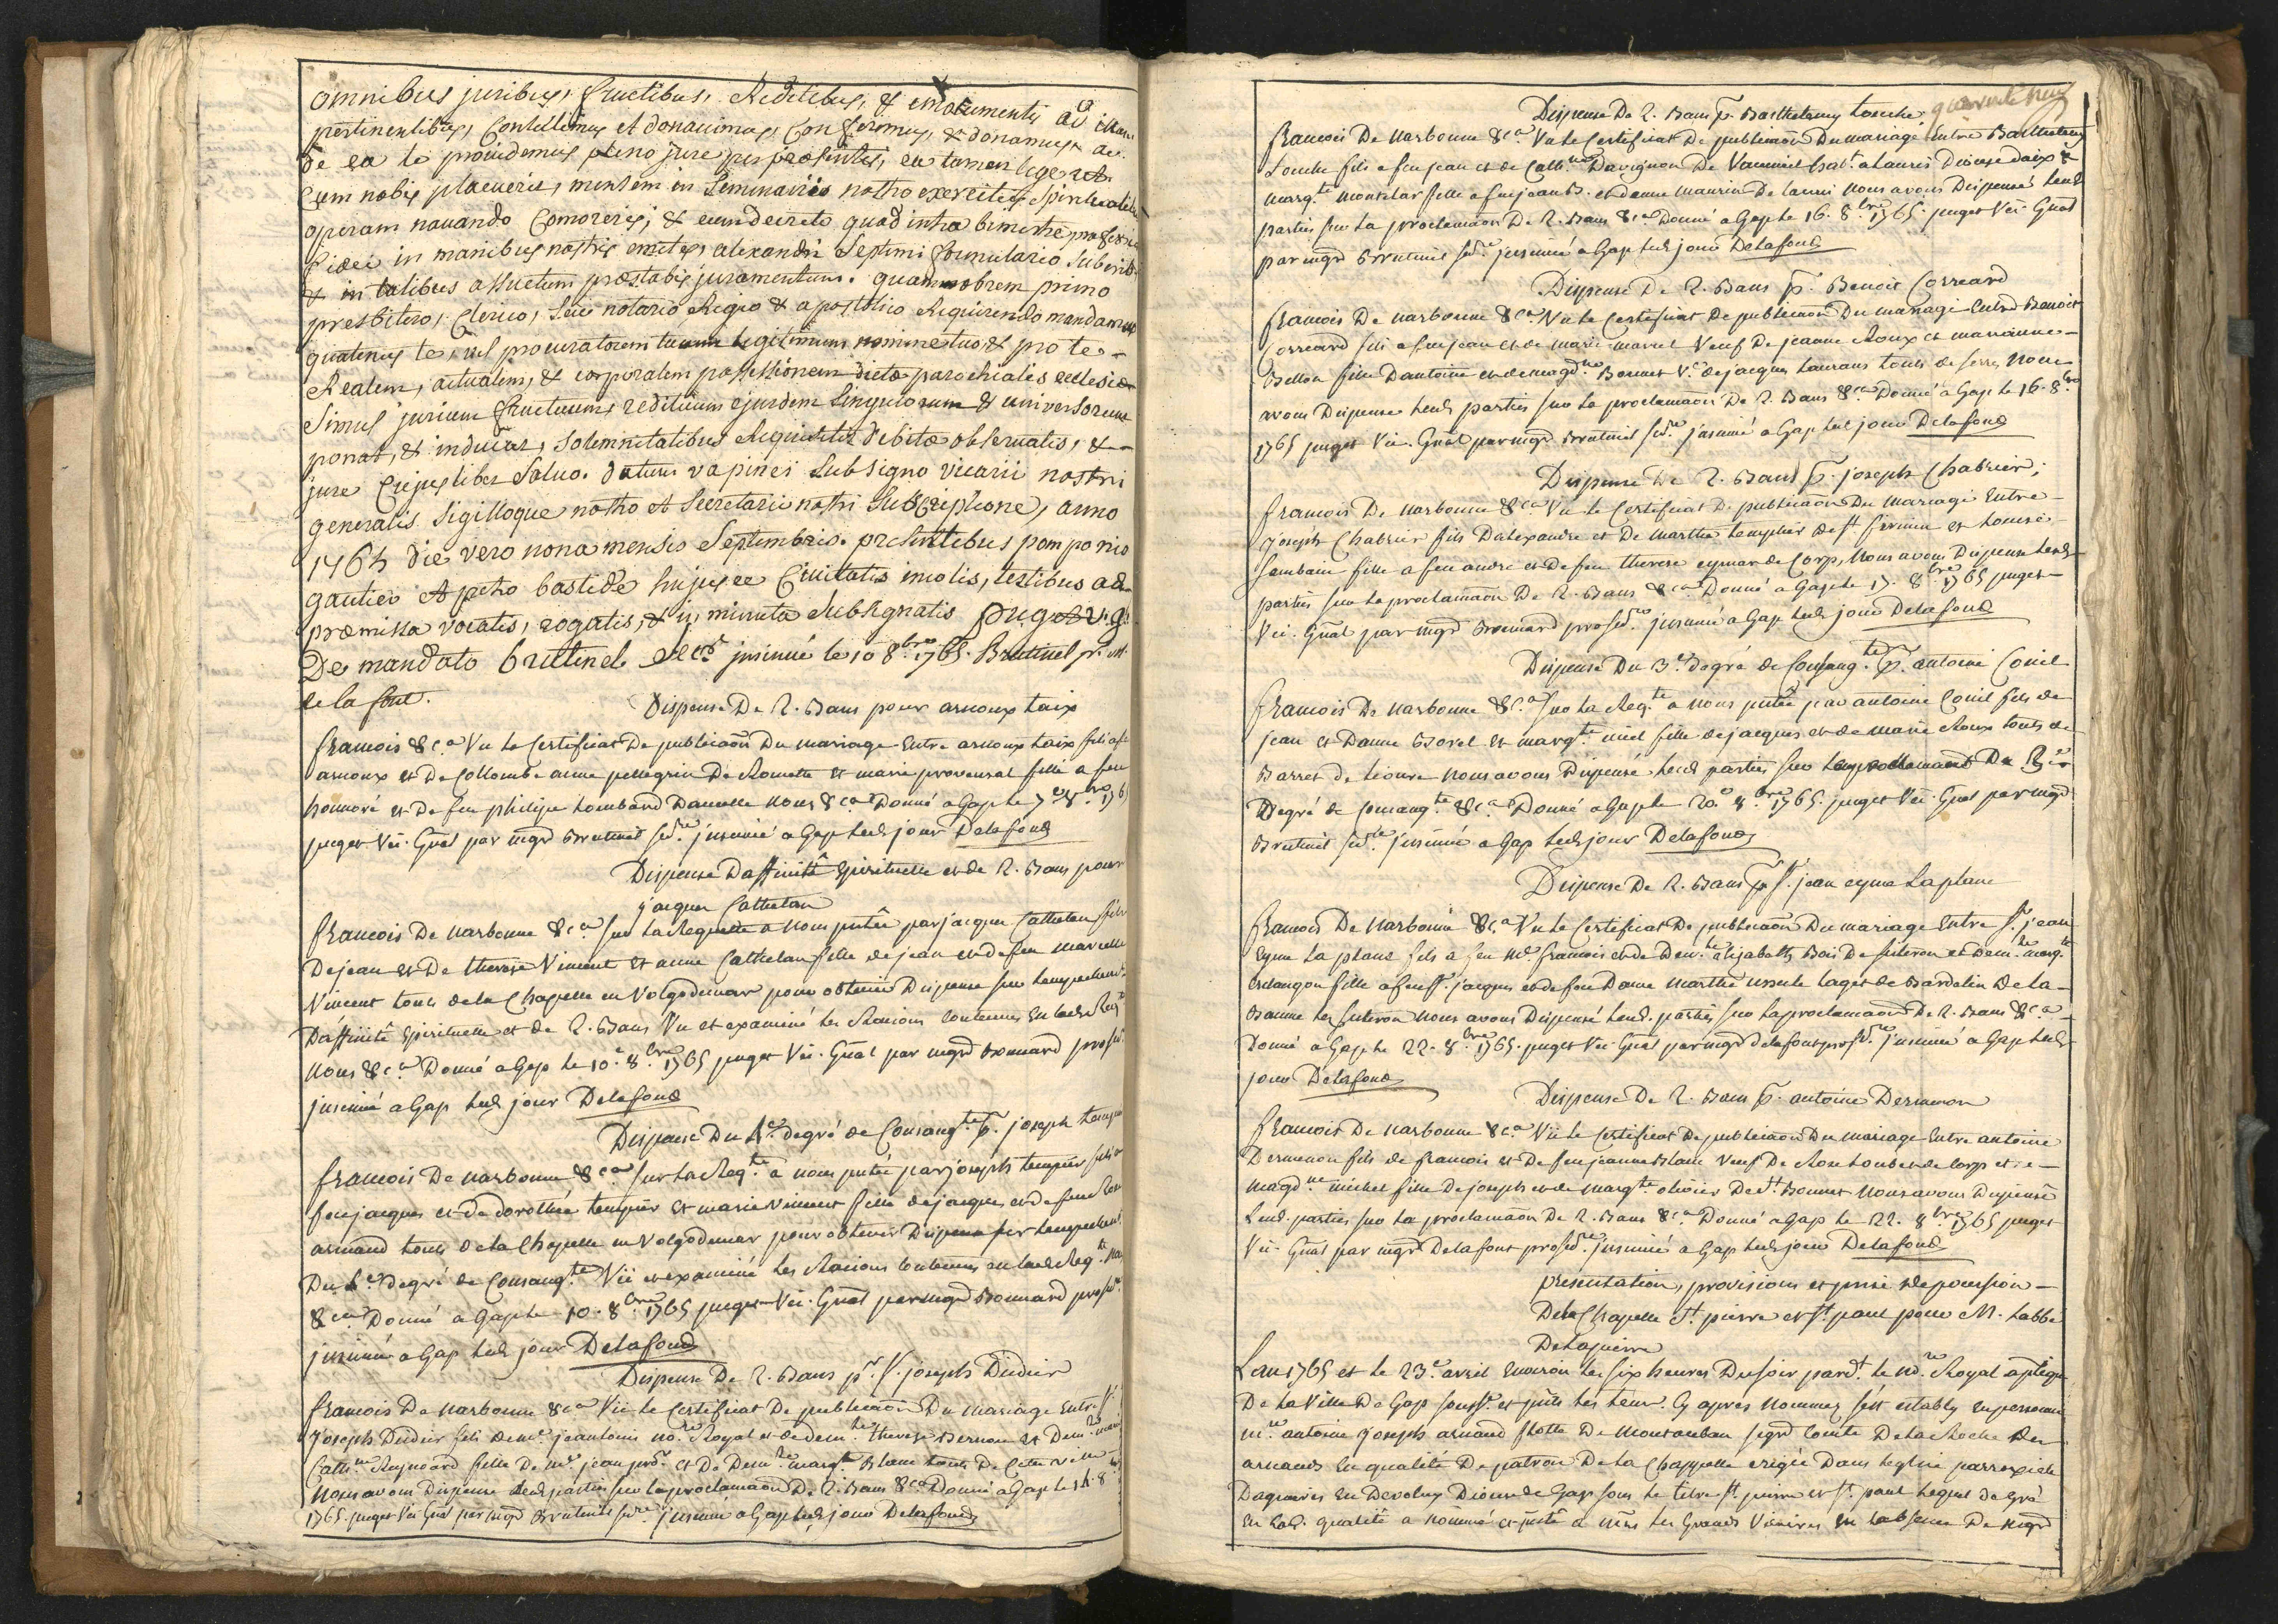 omnibus juribus, fructibus, Reditibus, & emolumentis ad illam
pertinentibus, Contulimus et donavimus, Conferimus, & donamus ac
de ea te providemus pleno jure per præsentes, ea tamen lege ut
Cum nobis placuerit, mensem in Seminario nostro exercitiis Spiritualibus
operam navando Comoreris; & eum decreto quod intra bimestre professio
fidei in manibus nostris emittes, alexandri Septimi formulario Subscribes
& in talibus assuetum præstabis juramentum. quamobrem primo
presbitero, Clerico, Seu notario Regio & apostolico Requirendo mandamus
quatenus te, vel procuratorem tuum legitimum nomine tuo & pro te
Realem, actualem, & corporalem possessionem dictæ parochialis ecclesiæ
Simul jurium fructuum, redituum ejusdem Singulorum & universorum
ponat, & inducat, Solemnitatibus Requisitis debitæ observatis, &
jure Cujuslibet Salvo. datum vapinci Sub Signo vicarii nostri
generalis Sigilloque nostro et Secretarii nostri Subscriptione, anno
1765 die vero nona mensis Septembris. præsentibus pomponio
gautier et petro bastide hujusce Civitatis incolis, testibus ad
præmissa vocatis, rogatis, & in minuta Subsignatis puget v. g.
De mandato brutinel Secre. insinué le 10 8bre 1765. Brutinel pr.
de la font.
Dispense De 2. Bans pour arnoux taix
françois &ca Vu le Certificat De publicaôn Du mariage Entre arnoux taix fils a feu
arnoux et De Collombe anne pellegrin De Romette et marie provensal fille a feu
honnoré et De feu philipe Lombard Nous &ca Donné a Gap le 7e 8bre 1765
puget Vic. Gnâl par mgr Brutinel sedre. insinué a Gap led jour Delafond
Dispense Daffinité Spirituelle et de 2. Bans pour
jacques Cathelan
françois De narbonne &ca sur la Requette a nous pntée par jacques Cathelan fils
De jean et De therese Vincent et anne Cathelan fille de jean et de feu marcelle
Vincent tous de la Chapelle en Valgodemar pour obtenir Dispense sur lempechemt
Daffinité Spirituelle et de 2. Bans Vu et examiné les Raisons Contenues En lad. Reqte
Nous &ca Donné a Gap le 10e 8bre 1765 puget Vic. Gnâl par mgr Bonnard prosed.
insinué a Gap led jour Delafond
Dispense Du 4e degré de Consangté. pr. joseph tempier
françois De narbonne &ca sur la Reqte a nous pntée par joseph tempier fils a
feu jacques et de dorothée tempier et marie Vincent fille de jacques et de feue
armand tous de la Chapelle en Valgodemar pour obtenir Dispense sur lempechemt
Du 4e degré de Consangté. Vu et examiné les Raisons Contenues en lad. Reqte Nous
&ca Donné a Gap le 10. 8bre 1765 puget Vic. Gnâl par mgr Bonnard prosed.
insinué a Gap led jour Delafond
Dispense De 2. Bans pr. Sr. joseph Didier
françois De narbonne &ca Vu le Certificat De publicaôn Du mariage Entre Sr.
joseph Didier fils de me. jeantoine nore Royal et de demlle therese Bernon et Demlle marie
Cathne fille De me. jean et De Demlle margte
Nous avons Dispensé lesd parties sur la proclamaôn De 2. Bans &ca Donné a Gap le 14. 8
1765. puget Vic Gnâl par mgr Brutinel sedre insinué a Gap led jour Delafond
quarante neuf
Dispense De 2. Bans pr. Barthelemy Louche
françois De narbonne &ca Vu le Certificat De publicaôn Du mariage Entre Barthelemy
Louche fils a feu jean et de Cathne Davignon De habt a Lauris Diocese daix &
margte Montelar fille a feu jean B. et danne maurin De lauris Nous avons Dispensé lesd
parties sur la proclamaôn De 2. Bans &ca Donné a Gap le 16. 8bre 1765. puget Vic Gnâl
par mgr Brutinel sedre. insinué a Gap led jour Delafond
Dispense De 2. Bans pr. Benoit Correard
françois De narbonne &ca Vu le Certificat De publicaôn Du mariage Entre Benoit
Correard fils a feu jean et de marie marcel Veuf De jeanne Roux et marianne
Bellon fille Dantoine et de magdne Bonnet Ve. de jacques Laurans tous de serres Nous
avons Dispensé lesd parties sur la proclamaôn De 2. Bans &ca Donné a Gap le 16. 8bre
1765 puget Vic. Gnâl par mgr Brutinel sedre. insinué a Gap led jour Delafond
Dispense De 2. Bans pr. joseph Chabrier
françois De narbonne &ca Vu le Certificat De publicaôn Du mariage Entre
joseph Chabrier fils Dalexandre et De marthe templier de st firmin et Louise
fille a feu andré et de feu therese eymar de Corp, Nous avons Dispensé lesd
parties sur la proclamaôn De 2. Bans &ca Donné a Gap le 17. 8bre 1765 puget
Vic. Gnâl par mgr Bonnard prosedre. insinué a Gap led jour Delafond
Dispense Du 3e degré de Consangté. pr. antoine Conil
françois De narbonne &ca sur la Reqte a nous pntée par antoine Conil fils de
jean et Danne Borel et margte fille de jacques et de marie Roux tous de
Barret de lioure nous avons Dispensé lesd parties sur Du 3e
Degré de Consangté &ca Donné a Gap le 20e 8bre 1765. puget Vic. Gnâl par mgr
Brutinel sedre insinué a Gap led jour Delafond
Dispense De 2. Bans pr. Sr. jean eyme Laplane
françois De narbonne &ca Vu le Certificat De publicaôn Du mariage Entre Sr. jean
Eyme La plane fils a feu me. françois et de Demlle elizabeth De sisteron et Demlle margte
fille a feu Sr. jacques et de feu Dame marthe ursule Laget de Bardelin De la
Baume les sisteron Nous avons Dispensé lesd. parties sur la proclamaôn De 2. Bans &ca
Donné a Gap le 22. 8bre 1765. puget Vic Gnâl par mgr Delafont prosedre. insinué a Gap led
jour Delafond
Dispense De 2. Bans pr. antoine Dermenon
françois De narbonne &ca Vu le Certificat De publicaôn Du mariage Entre antoine
Dermenon fils de françois et De feu jeanne Blanc Veuf De de Corp et
magdne michel fille De joseph et de margte olivier De St. Bonnet Nous avons Dispensé
Lesd. parties sur la proclamaôn De 2. Bans &ca Donné a Gap le 22. 8bre 1765 puget
Vic. Gnâl par mgr Delafont prosedre. insinué a Gap led jour Delafond
presentation, provisions et prise de possession
De la Chapelle St. pierre et st. paul pour M. Labbé
Delapierre
Lan 1765 et le 23e avril Environ les six heures Du soir pardt le nore Royal aptique
De la Ville De Gap soussé. et pnts les tem. Cy apres Nommez sest establi en personne
mre antoine joseph arnaud flotte De Montauban seigr Comte De la Roche des
arnauds En qualité De patron De la Chappelle erigée Dans leglise parroxielle
Dagnieres En Devoluy Diocese de Gap sous le titre st. pierre et st. paul lequel de gré
en lad. qualité a nommé et pnté a mrs les Grands Vicaires en labsence De mgr